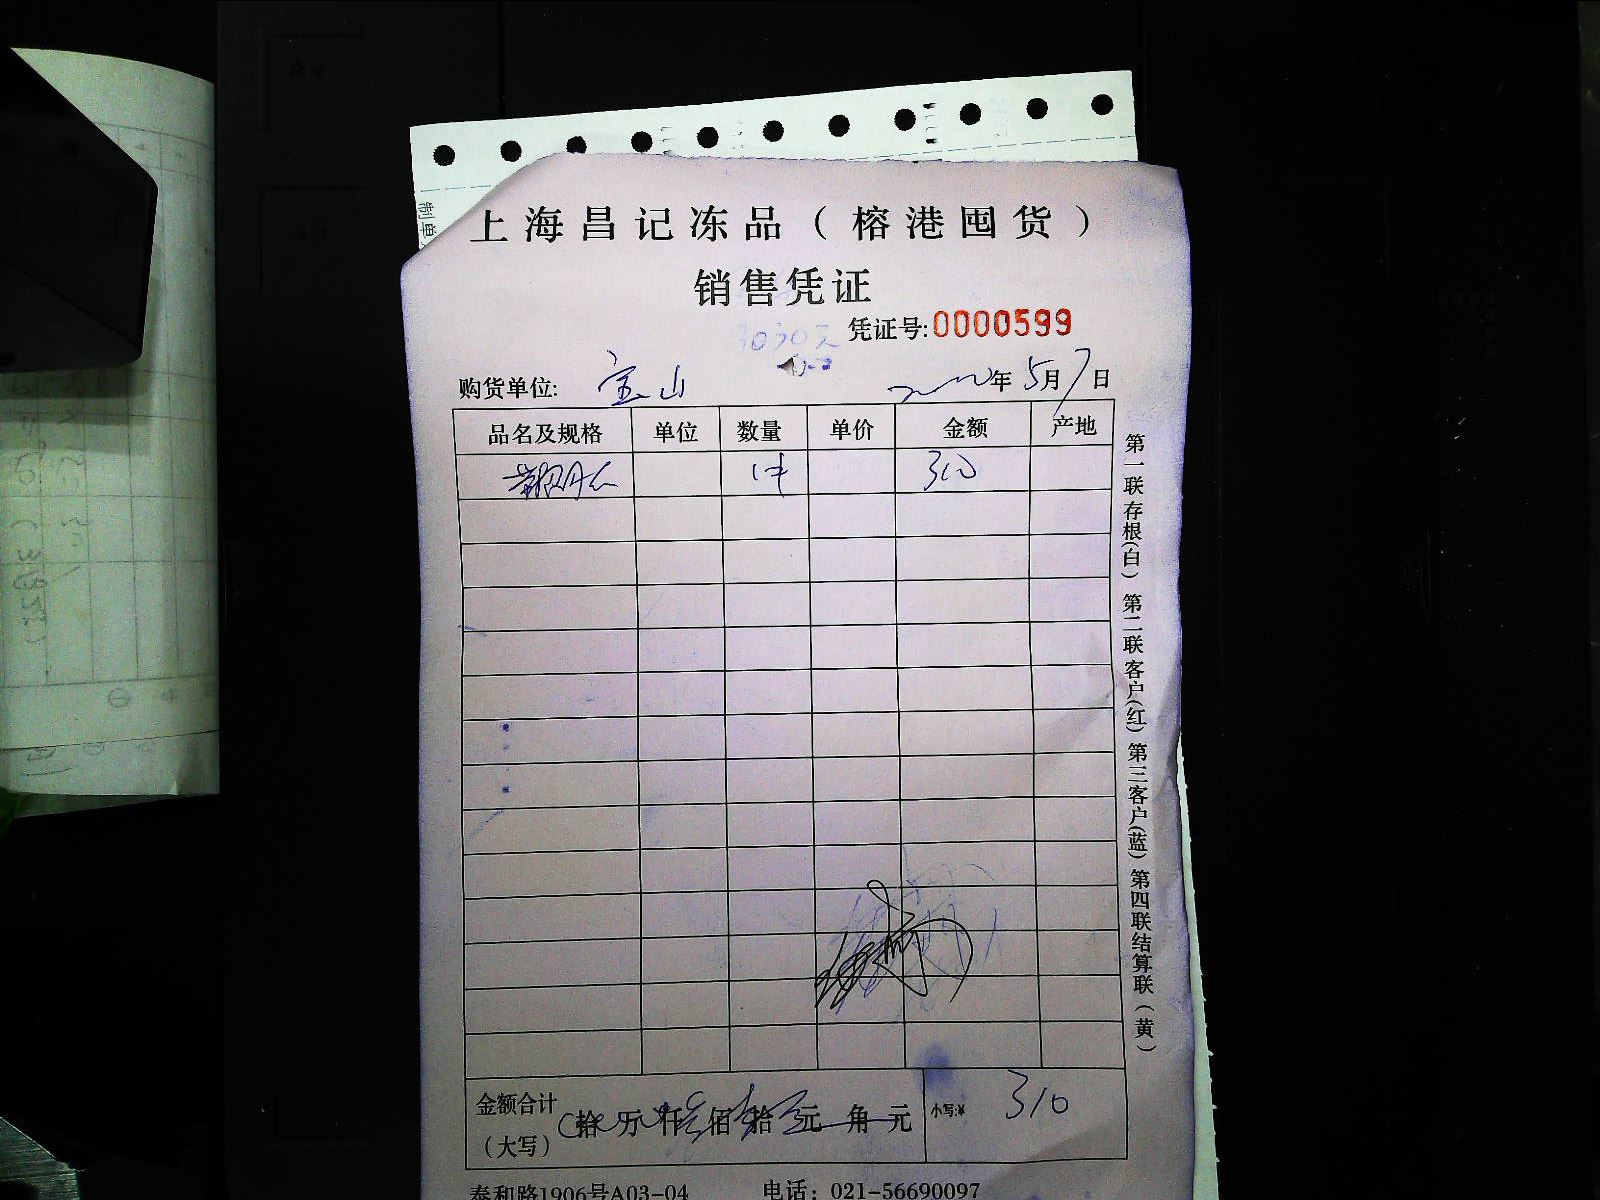 上海昌记冻品（榕港囤货）
销售凭证
3030元
凭证号:0000599
购货单位: 宝山 年 5月7日
品名及规格 单位 数量 单价 金额 产地
1件 310
第一联存根(白) 第二联客户(红) 第三客户(蓝) 第四联结算联(黄)
金额合计（大写） 拾 万 仟 佰 拾 元 角 元 小写:¥ 310
泰和路1906号A03-04 电话：021-56690097
制单